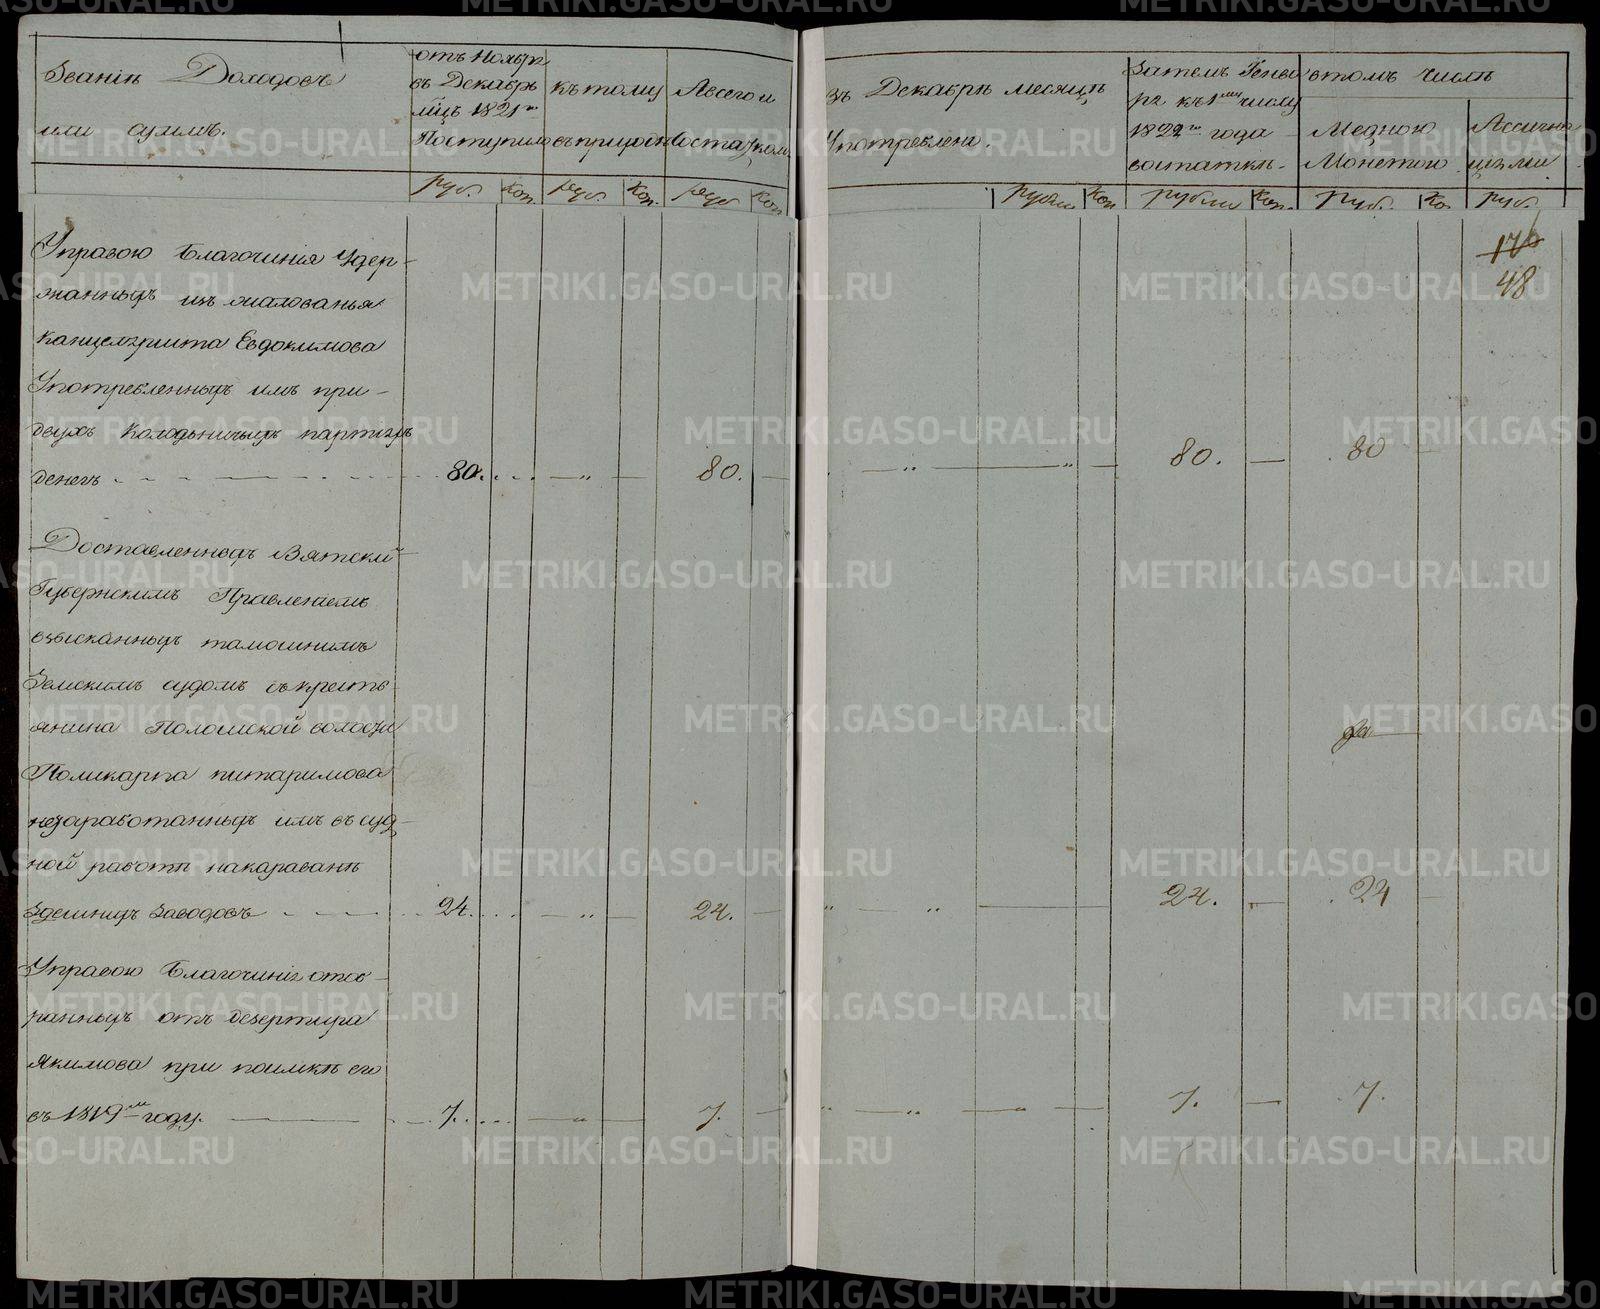 Званіе Доходовъ
или суммъ.
отъ Ноября
въ Декабрь
мцъ 1821го
Поступило
къ тому
въ приходъ
А всего и
въ Декабрѣ месяцѣ
Употреблено.
Затемъ Генва
ря къ 1му числу
1822го года
востаткѣ
втомъ числѣ
Медною
Монетою
Ассигна
цыями
руб. Коп. руб. Коп. руб Коп
рубли Коп рубли Коп. Руб. Ко руб.
176
48
Управою Благочинія Удер-
жанныхъ изъ жалованья
Канцеляриста Евдокимова
Употребленныхъ имъ при-
двухъ Колодничьихъ партіяхъ
денегъ 80. — " — 80. — " — " — 80. — 80 —
Доставленныхъ Вятскимъ
Губернскимъ Правленіемъ
взысканныхъ тамошнимъ
Земскимъ судомъ съ кресть-
янина Поломской волости
Поликарпа питиримова
незаработанныхъ имъ въ суд-
ной работѣ накараванѣ
здешнихъ Заводовъ 24. — " — 24. — " " — 24. — 24 —
Управою Благочинія отоб-
ранныхъ отъ дезертира
Якимова при поимкѣ его
въ 1819мъ году. 7. — " — 7. — " " — " — 7. — 7.
METRIKI.GASO-URAL.RU